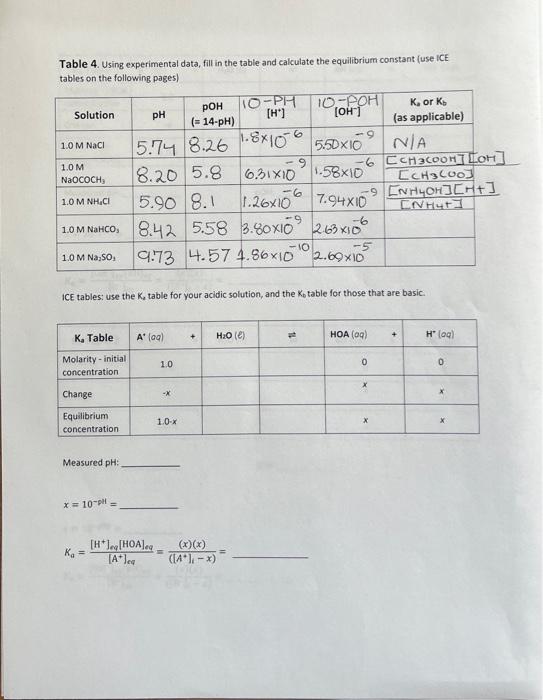 Table 4. Using experimental data, fill in the table and calculate the equilibrium constant (use ICE
tables on the following pages)
Solution pH pOH (= 14-pH) 10-PH [H⁺] 10-POH [OH⁻] Kₐ or K_b (as applicable)
1.0 M NaCl 5.74 8.26 1.8×10⁻⁶ 5.50×10⁻⁹ N/A
1.0 M NaOCOCH₃ 8.20 5.8 6.31×10⁻⁹ 1.58×10⁻⁶ [CH3COOH][OH] [CH3COO]
1.0 M NH₄Cl 5.90 8.1 1.26×10⁻⁶ 7.94×10⁻⁹ [NH4OH][H+] [NH4+]
1.0 M NaHCO₃ 8.42 5.58 3.80×10⁻⁹ 2.63×10⁻⁶
1.0 M Na₂SO₃ 9.73 4.57 1.86×10⁻¹⁰ 2.69×10⁻⁵
ICE tables: use the Kₐ table for your acidic solution, and the K_b table for those that are basic.
Kₐ Table A⁺ (aq) + H₂O (ℓ) ⇌ HOA (aq) + H⁺ (aq)
Molarity - initial concentration 1.0 0 0
Change -x x x
Equilibrium concentration 1.0-x x x
Measured pH:
x = 10⁻ᵖᴴ =
Kₐ = [H⁺]eq[HOA]eq / [A⁺]eq = (x)(x) / ([A⁺]ᵢ − x) =